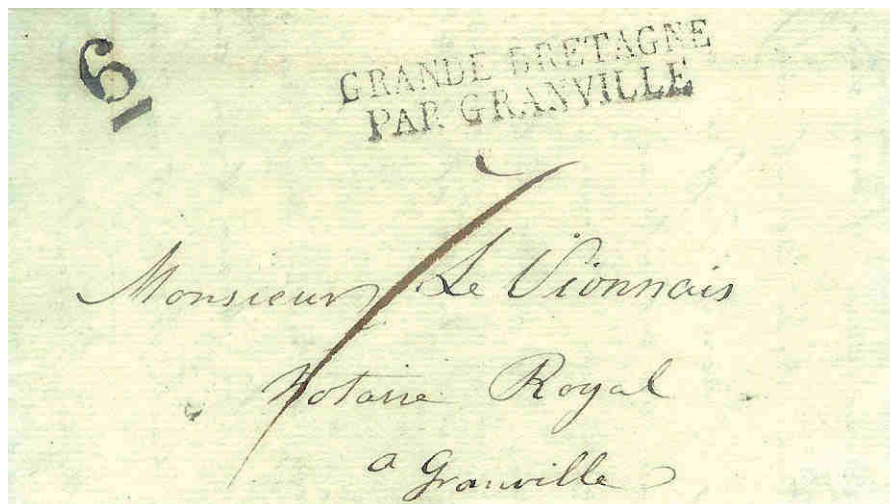 GRANDE BRETAGNE
PAR GRANVILLE
7
Monsieur Le Vionnais
Notaire Royal
a Granville